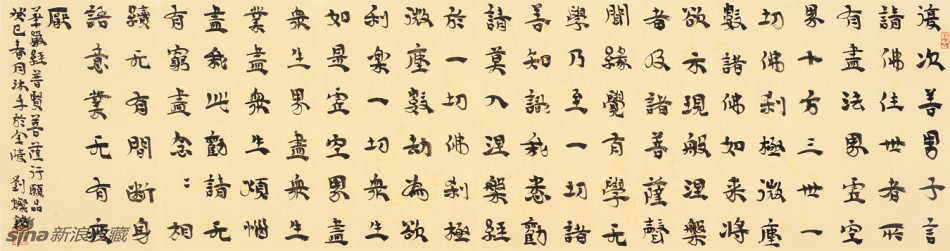 復次善男子言
請佛住世者所
有盡法界虛空
界十方三世一
切佛刹極微塵
數諸佛如來將
欲示現般涅槃
者及諸菩薩聲
聞緣覺有學无
學乃至一切諸
善知識我悉勸
請莫入涅槃經
於一切佛刹極
微塵數劫為欲
利樂一切衆生
如是虛空界盡
衆生界盡衆生
業盡衆生煩惱
盡我此勸請无
有窮盡念〻相
續无有間斷身
語意業无有疲
厭
華嚴經普賢菩薩行願品
癸巳春月沐手於金陵 劉燦銘
sina新浪收藏